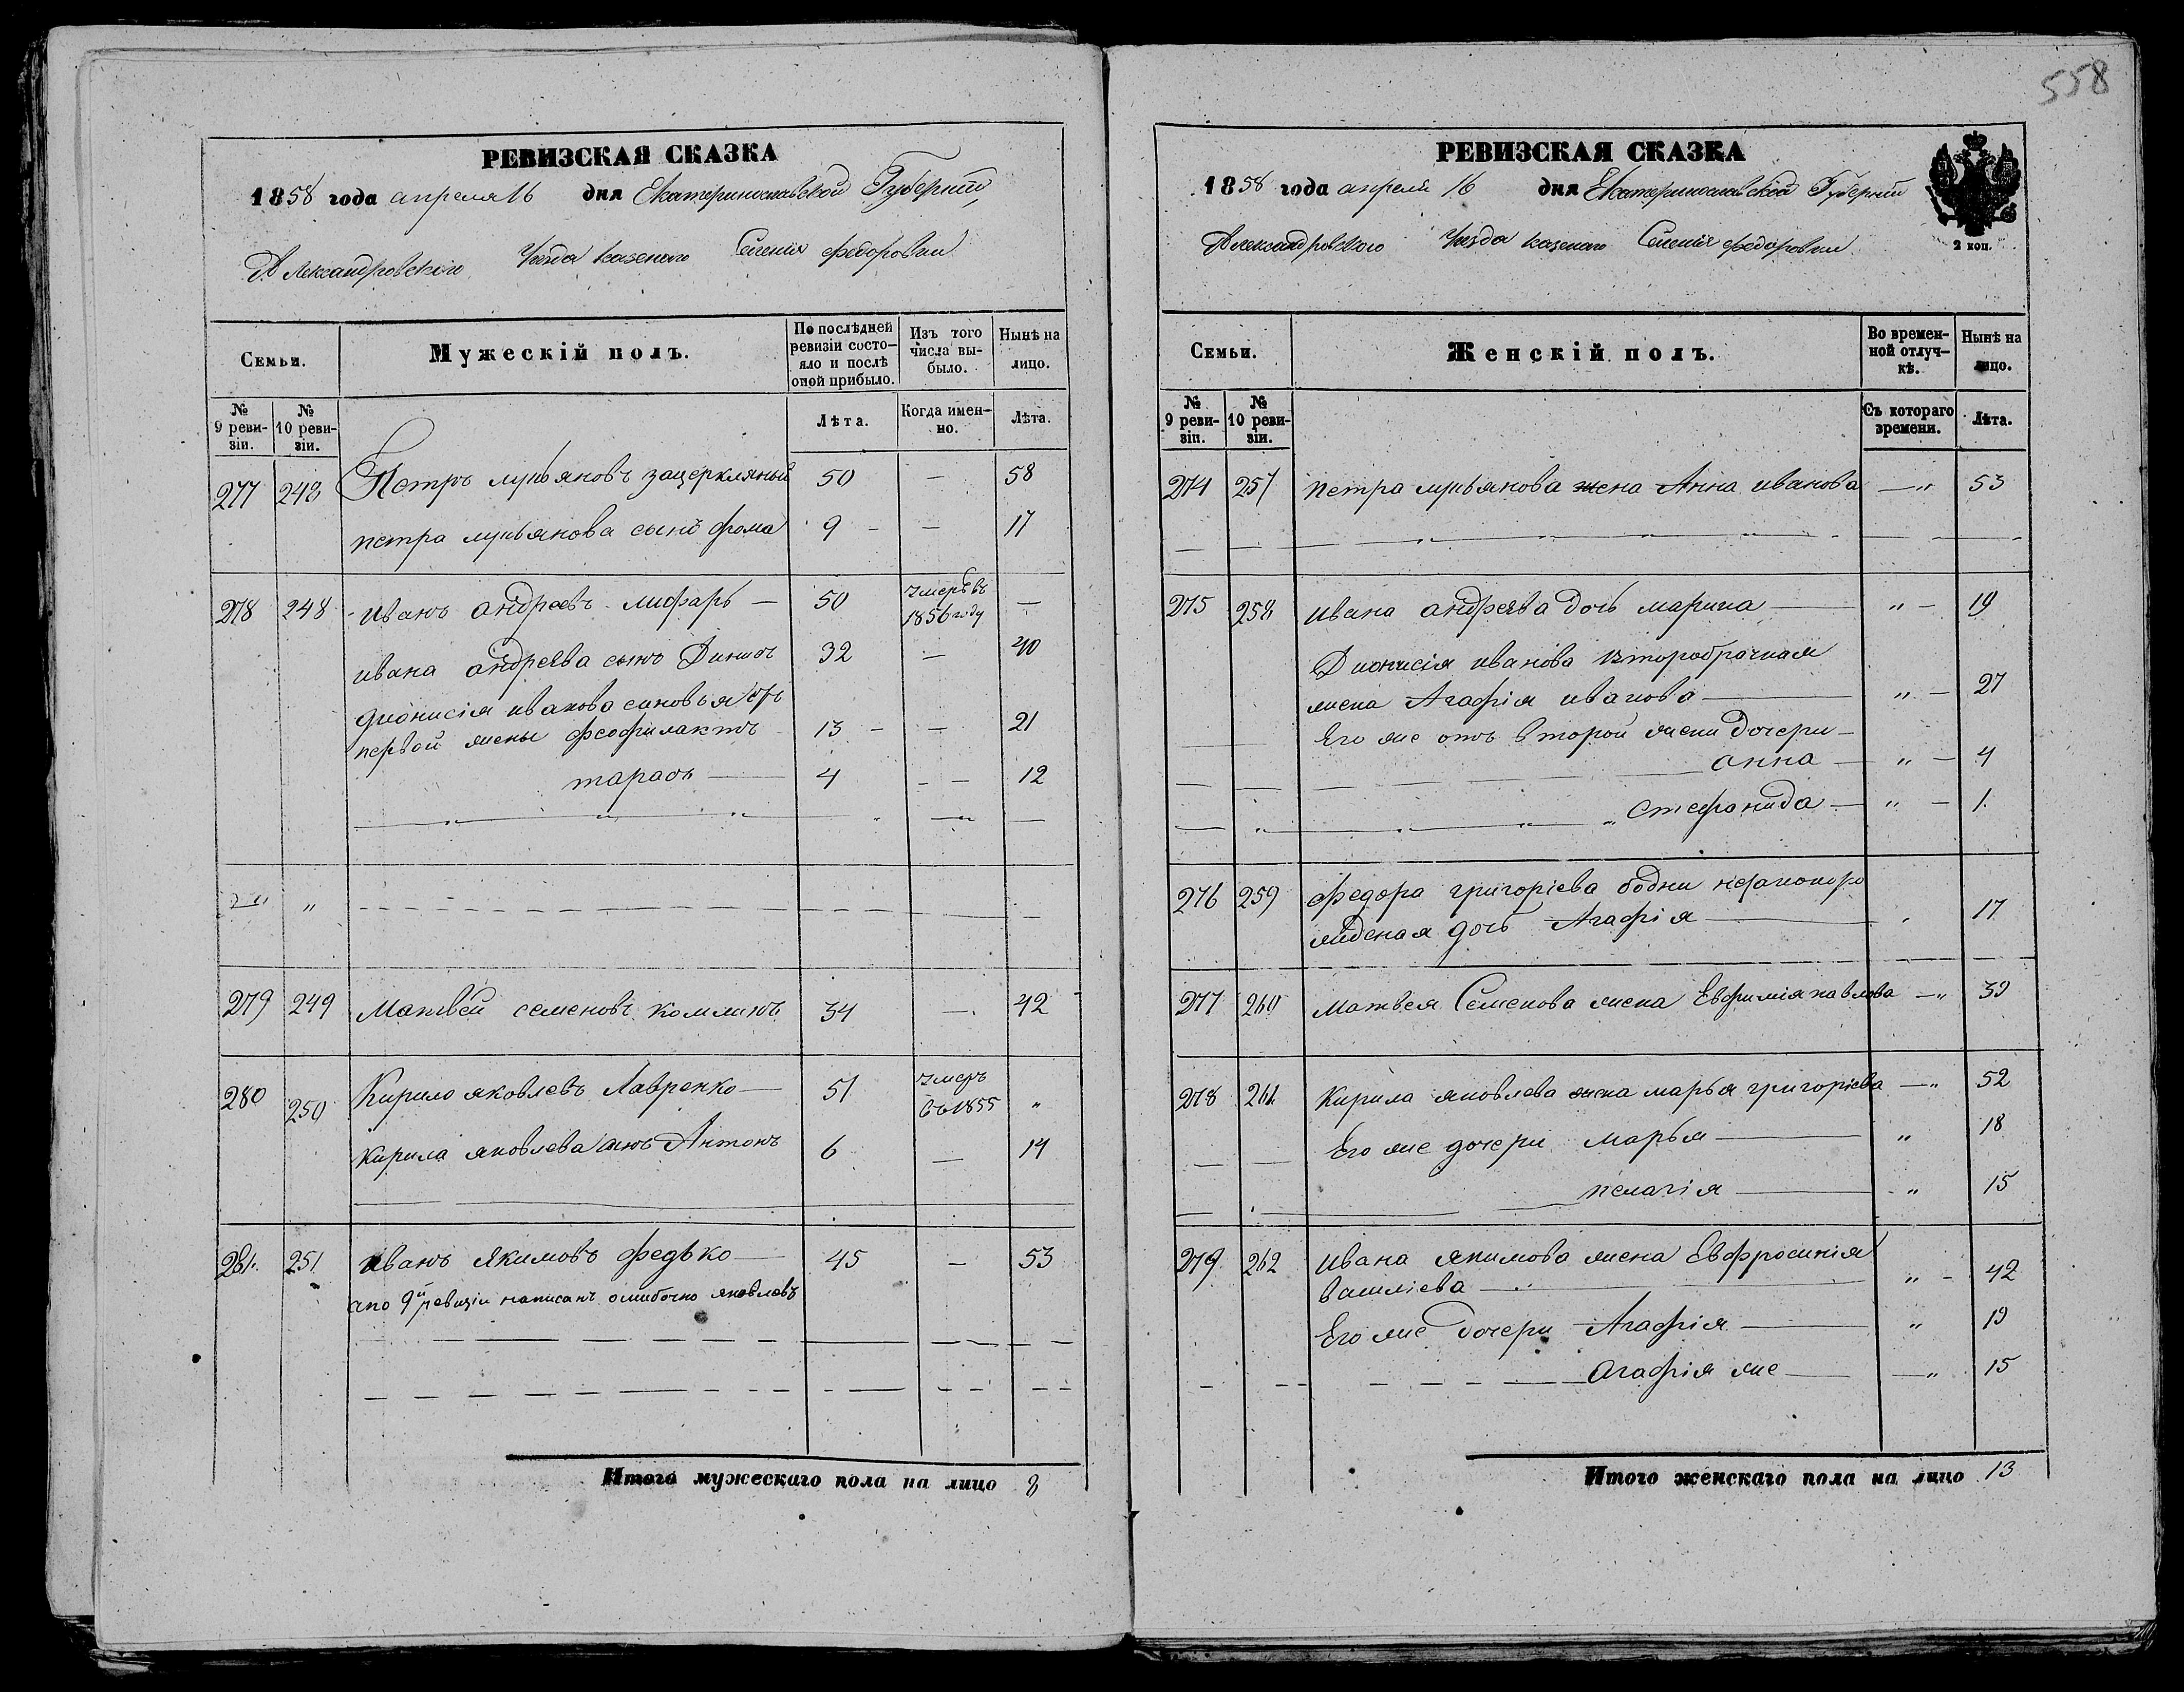 558
РЕВИЗСКАЯ СКАЗКА
1858 года апреля 16 дня Екатеринославской Губернии,
Александровского Уезда казенаго Селения федоровки
Семьи.
Мужескій полъ.
По послѣдней ревизіи состо-яло и послѣ оной прибыло.
Изъ того числа вы-было.
Нынѣ на лицо.
№ 9 реви-зіи.
№ 10 реви-зіи.
Лѣта.
Когда имен-но.
Лѣта.
277 248 Петръ лукьяновъ зацеркляный 50 — 58
петра лукьянова сынъ фома 9 - — 17
278 248 иванъ андреевъ лифарь — 50 умеръ въ 1856 году —
ивана андреева сынъ 32 — 40
дионисія иванова синовья отъ
первой жены феофилактъ 13 - — 21
тарасъ — 4 — 12
279 249 Матвей семеновъ 34 — 42
280 250 Кирило яковлевъ Лавренко — 51 умеръ въ 1855 "
Кирила яковлева сынъ Антонъ 6 — 14
281. 251 иванъ якимовъ федько — 45 — 53
а по 9й ревизіи написанъ ошибочно яковлевъ
Итого мужескаго пола на лицо 8
РЕВИЗСКАЯ СКАЗКА
1858 года апреля 16 дня Екатеринославской Губернии
Александровского Уезда казенаго Селения федоровки
2 коп.
Семьи.
Женскій полъ.
Во времен-ной отлуч-кѣ.
Нынѣ на лицо.
№ 9 реви-зіи.
№ 10 реви-зіи.
Съ котораго времени.
Лѣта.
274 257 петра лукьянова жена Анна иванова —" 53
275 258 ивана андреева дочь марина — " — 19
Дионисія иванова второбрачная
жена Агафія иванова — " — 27
Его же отъ второй жени дочери —
анна — " — 4
Стефанида — " — 1.
276 259 федора григоріева бодни
дочь Агафія — 17
277 260 матвея Семенова жена Евфимія павлова —" 39
278 261. Кирила яковлева жена марья григоріева —" 52
Его же дочери марья — " 18
пелагія — " 15
279 262 ивана якимова жена Евфросинія
василіева — " - 42
Его же дочери Агафія — " 19
Агафія же — —" 15
Итого женскаго пола на лицо 13